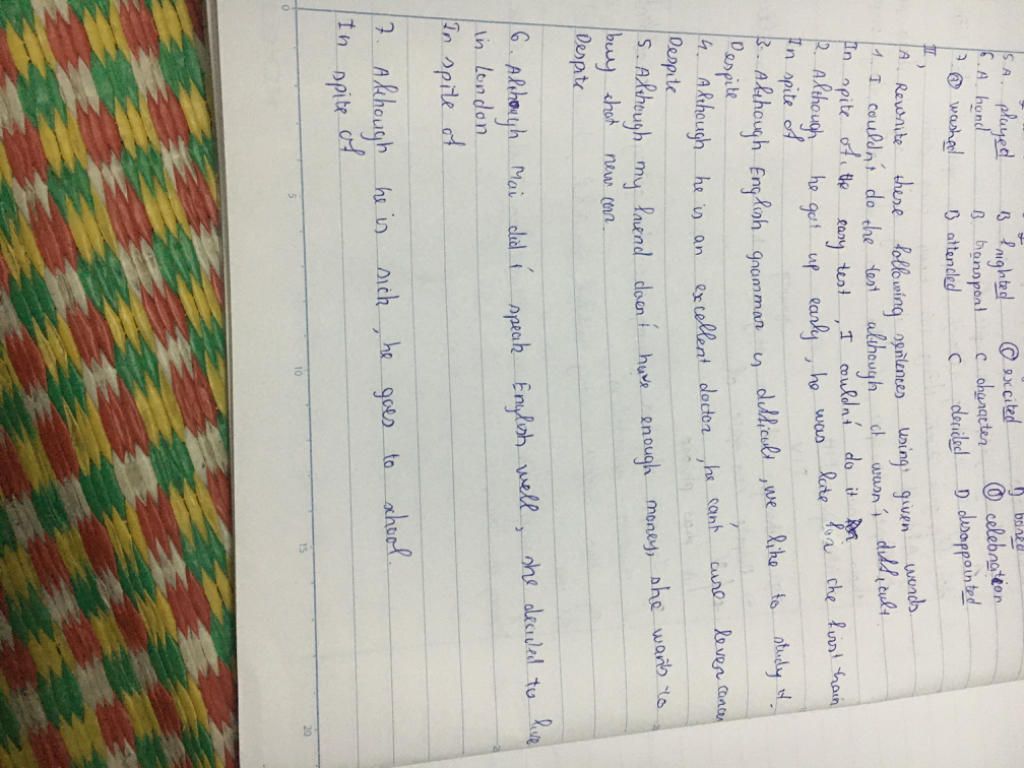 5 A. played B frighted C excited D bored
6. A. hand B transport C character D celebration
7. A washed B attended C decided D disappointed
II,
A. Rewrite these following sentences using given words
1. I couldn't do the test although it wasn't difficult.
In spite of the easy test, I couldn't do it
2. Although he got up early, he was late for the first train
In spite of
3. Although English grammar is difficult, we like to study it.
Despite
4. Although he is an excellent doctor, he can't cure lever cancer
Despite
5. Although my friend doesn't have enough money, she wants to
buy that new car.
Despite
6. Although Mai didn't speak English well, she decided to live
in London
In spite of
7. Although he is sick, he goes to school.
In spite of
0 5 10 15 20